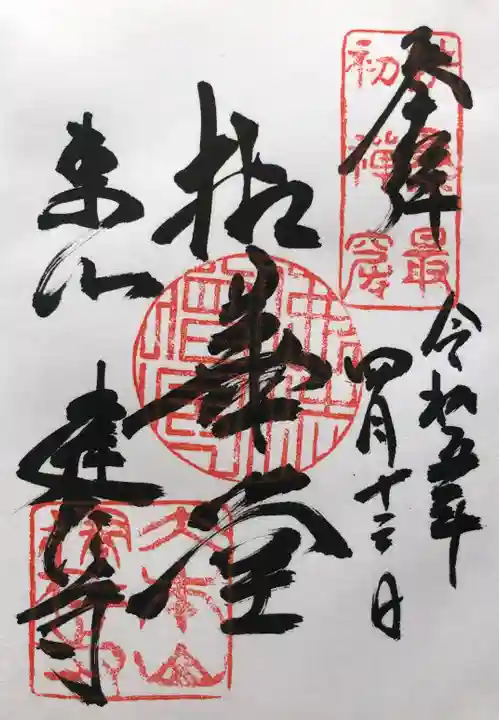 奉拝
令和五年
四月十三日
拈華堂
東山
建仁寺
最初禅窟
大本山